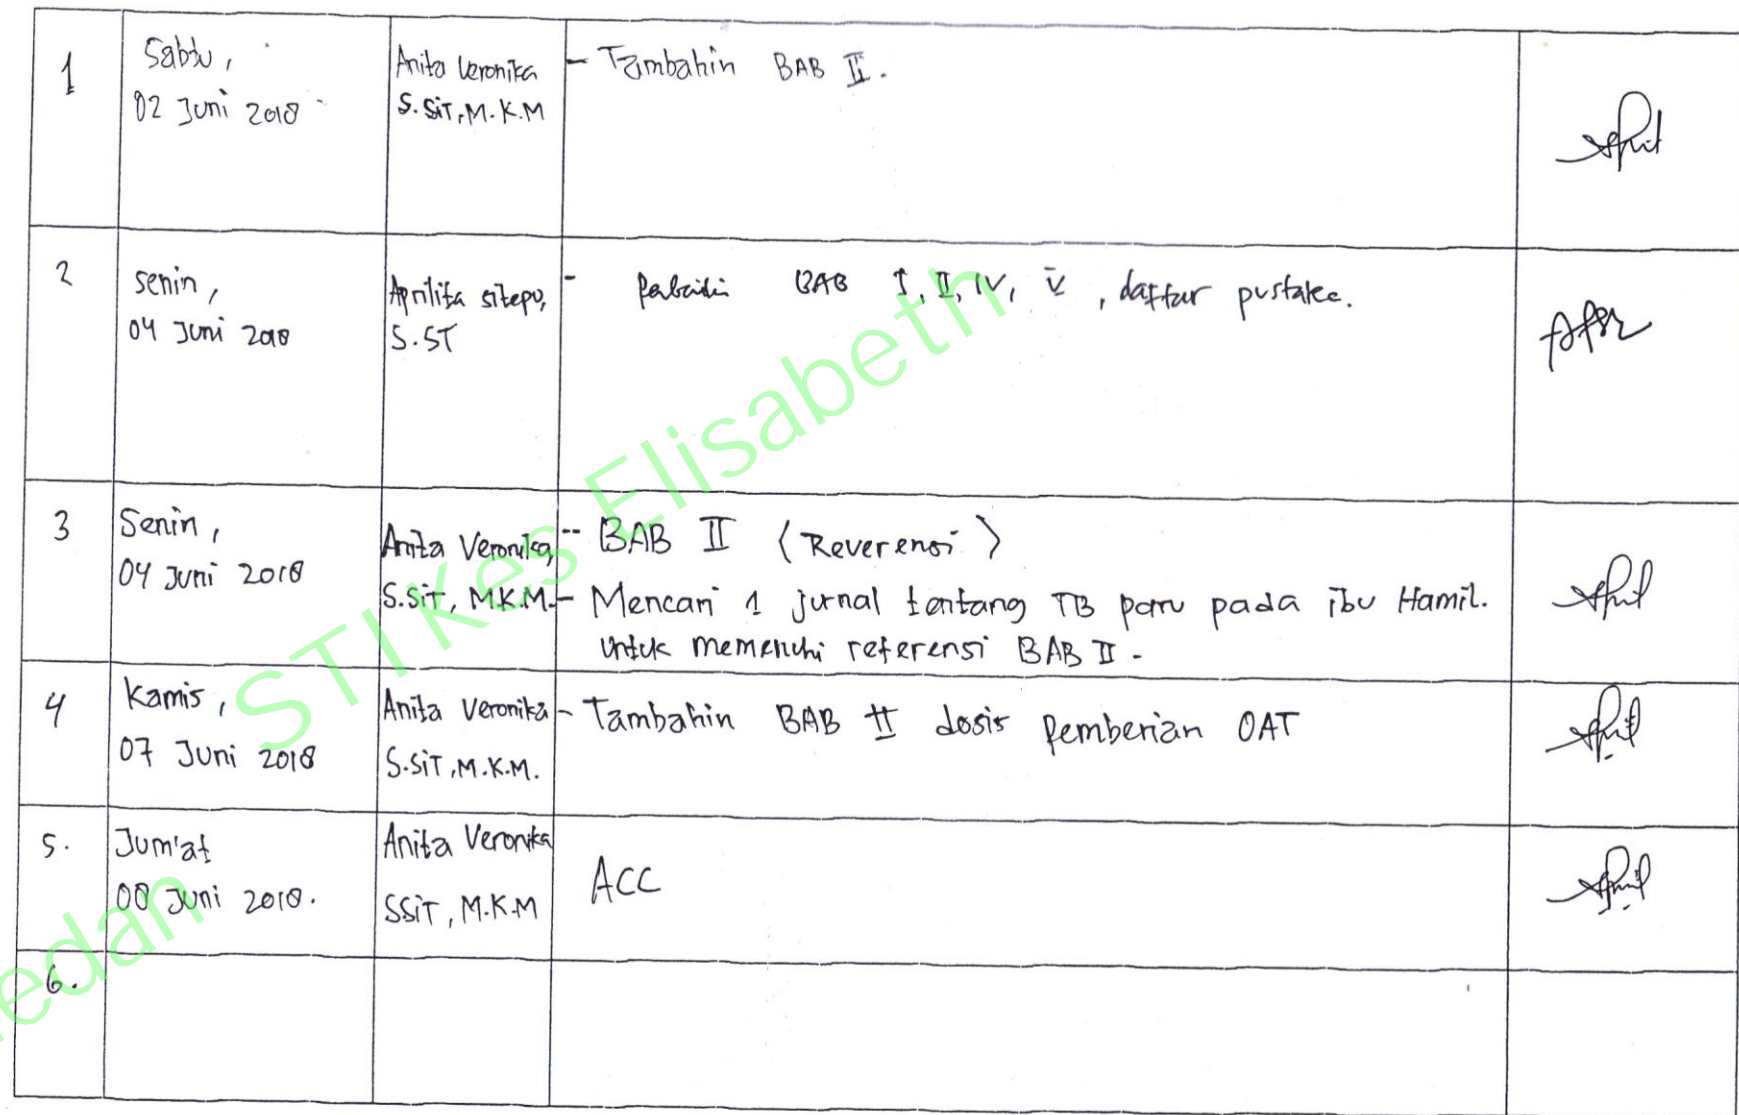 1
Sabtu,
02 Juni 2018
Anita Veronika
S.SiT, M.K.M
- Tambahin BAB II.
2
senin,
04 Juni 2018
Aprilita sitepu,
S.ST
- Perbaiki BAB I, II, IV, V, daftar pustaka.
3
Senin,
04 Juni 2018
Anita Veronika,
S.SiT, M.K.M.
- BAB II (Reverensi)
- Mencari 1 jurnal tentang TB paru pada ibu Hamil.
untuk memenuhi referensi BAB II.
4
Kamis,
07 Juni 2018
Anita Veronika
S.SiT, M.K.M.
- Tambahin BAB II dosis Pemberian OAT
5.
Jum'at
08 Juni 2018.
Anita Veronika
SSiT, M.K.M
ACC
6.
STIKes Elisabeth
edan